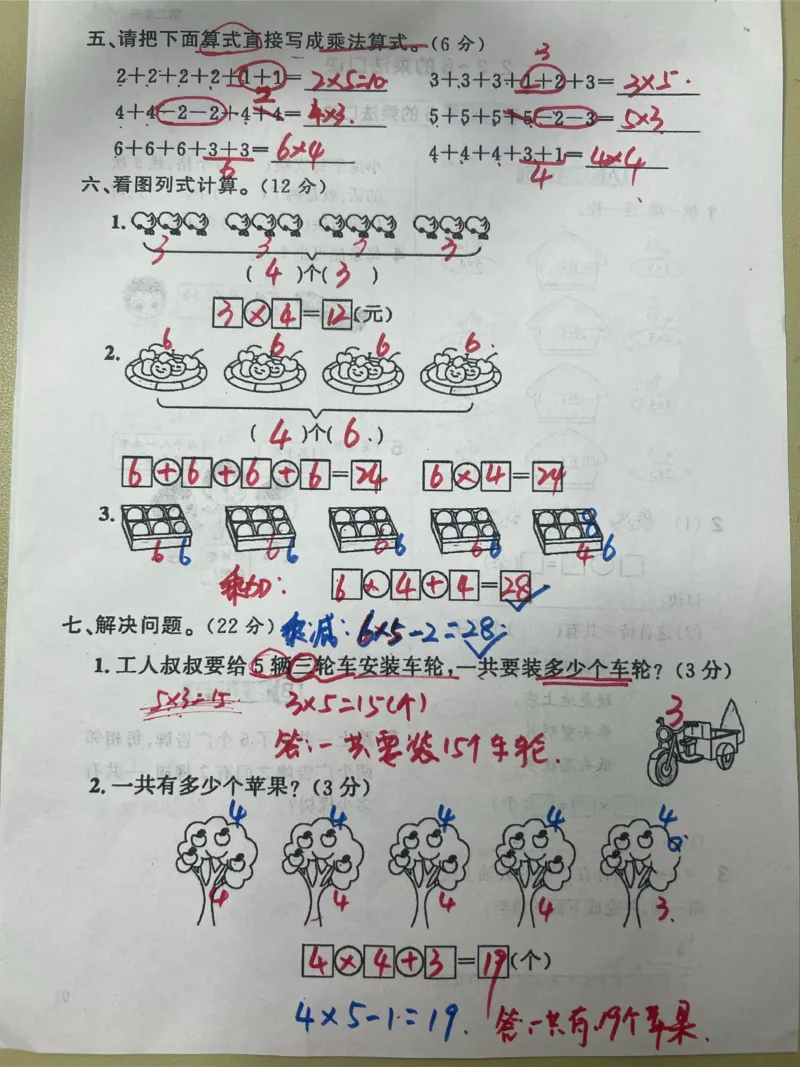 五、请把下面算式直接写成乘法算式。(6分)
2+2+2+2+1+1= 2×5=10
2
3+3+3+1+2+3= 3×5
3
4+4-2-2+4+4= 4×3
5+5+5+5-2-3= 5×3
6+6+6+3+3= 6×4
6
4+4+4+3+1= 4×4
4
六、看图列式计算。(12分)
1.
3 3 3 3
( 4 )个( 3 )
3×4=12(元)
2.
6 6 6 6
( 4 )个( 6 )
6+6+6+6=24 6×4=24
3.
6 6 6 6 6 6 6 6 4 6
乘加: 6×4+4=28
七、解决问题。(22分) 乘减: 6×5-2=28
1.工人叔叔要给5辆三轮车安装车轮,一共要装多少个车轮?(3分)
5×3=15 3×5=15(个)
3
答:一共要装15个车轮.
2.一共有多少个苹果?(3分)
4 4 4 4 4
4 4 4 4 3
4×4+3=19(个)
4×5-1=19. 答:一共有19个苹果.